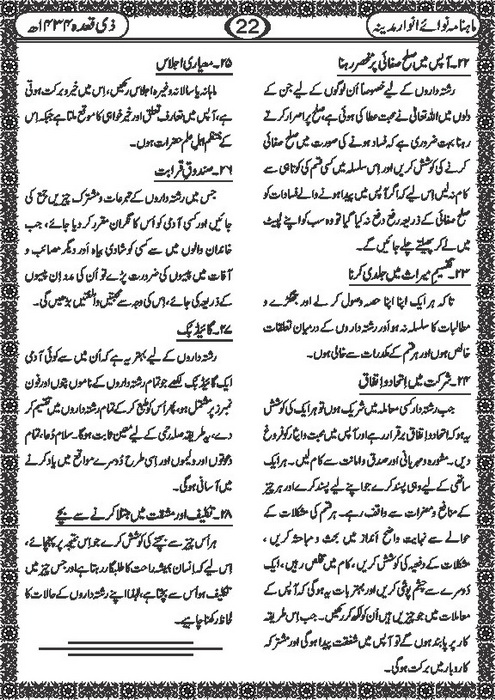 ماہنامہ نوائے انوارِ مدینہ
22
ذی قعدہ ۱۴۳۴ھ
۲۲۔ آپس میں صلح صفائی پر مُصر رہنا
رشتہ داروں کے لیے خصوصاً اُن لوگوں کے لیے جن کے
دلوں میں اللہ تعالیٰ نے محبت عطا کی ہوئی ہے، صلح پر اصرار کرتے
رہنا بہت ضروری ہے کہ فساد ہونے کی صورت میں صلح صفائی
کرنے کی کوشش کریں اور اِس سلسلہ میں کسی قسم کی کوتاہی سے
کام نہ لیں اِس لیے کہ اگر آپس میں پیدا ہونے والے فسادات کو
صلح صفائی کے ذریعہ رفع دفع نہ کیا گیا تو وہ سب کو اپنے لپیٹ
میں لے کر پھیلتے چلے جائیں گے۔
۲۳۔ تقسیمِ میراث میں جلدی کرنا
تاکہ ہر ایک اپنا اپنا حصہ وصول کر لے اور جھگڑے و
مطالبات کا سلسلہ نہ ہو اور رشتہ داروں کے درمیان تعلقات
خالص ہوں اور ہر قسم کے مکدرات سے خالی ہوں۔
۲۴۔ شرکت میں اِتحاد و اِتفاق
جب رشتہ دار کسی معاملہ میں شریک ہوں تو ہر ایک کی کوشش
یہ ہو کہ اتحاد و اِتفاق برقرار رہے اور آپس میں محبت و ایثار کو فروغ
دیں۔ مشورہ و مہربانی اور صدق و امانت سے کام لیں۔ ہر ایک
ساتھی کے لیے وہی پسند کرے جو اپنے لیے پسند کرے اور ہر چیز
کے منافع و مضرات سے واقف رہے۔ ہر قسم کی مشکلات کے
حوالے سے نہایت واضح انداز میں بحث و مباحثہ کریں،
مشکلات کے دفعیہ کی کوشش کریں، کام میں مخلص رہیں، ایک
دُوسرے سے چشم پوشی کریں اور بہتر بات یہ ہوگی کہ آپس کے
معاملات میں جو چیزیں ہیں اُن کو لکھ کر رکھیں۔ جب اِس طریقہ
کار پر پابند ہوں گے تو آپس میں شفقت پیدا ہوگی اور مشترکہ
کاروبار میں برکت ہوگی۔
۲۵۔ معیاری اجلاس
ماہانہ یا سالانہ وغیرہ اجلاس رکھیں، اِس میں خیر و برکت ہوتی
ہے، آپس میں تعارف تعلق اور خیر خواہی کا موقع ملتا ہے جبکہ اِس
کے منتظم اہلِ علم حضرات ہوں۔
۲۶۔ صندوقِ قرابت
جس میں رشتہ داروں کے تبرعات و مشترک چیزیں جمع کی
جائیں اور کسی آدمی کو اُس کا نگران مقرر کر دیا جائے، جب
خاندان والوں میں سے کسی کو شادی بیاہ اور دیگر مصائب و
آفات میں پیسوں کی ضرورت پڑے تو اُن کی مدد اِن پیسوں
کے ذریعہ کی جائے، اِس کی وجہ سے محبتیں و اُلفتیں بڑھیں گی۔
۲۷۔ گائیڈ بک
رشتہ داروں کے لیے بہتر یہ ہے کہ اُن میں سے کوئی آدمی
ایک گائیڈ بک لکھے جو تمام رشتہ داروں کے ناموں پتوں اور فون
نمبرز پر مشتمل ہو، پھر اُس کو طبع کر کے تمام رشتہ داروں میں تقسیم کر
دے، یہ طریقہ صلہ رحمی کے لیے معین ثابت ہوگا۔ سلام و دُعا، تمام
دعوتوں اور ولیموں اور اِسی طرح دُوسرے مواقع میں یاد کرنے
میں آسانی ہوگی۔
۲۸۔ تکلیف اور مشقت میں مبتلا کرنے سے بچے
ہر اُس چیز سے بچنے کی کوشش کرے جو اِس نتیجہ پر پہنچائے،
اِس لیے کہ انسان ہمیشہ راحت کا طلبگار رہتا ہے اور جس چیز میں
تکلیف ہو اُس سے بچتا ہے، لہٰذا اپنے رشتہ داروں کے حالات کا
لحاظ رکھنا چاہیے۔